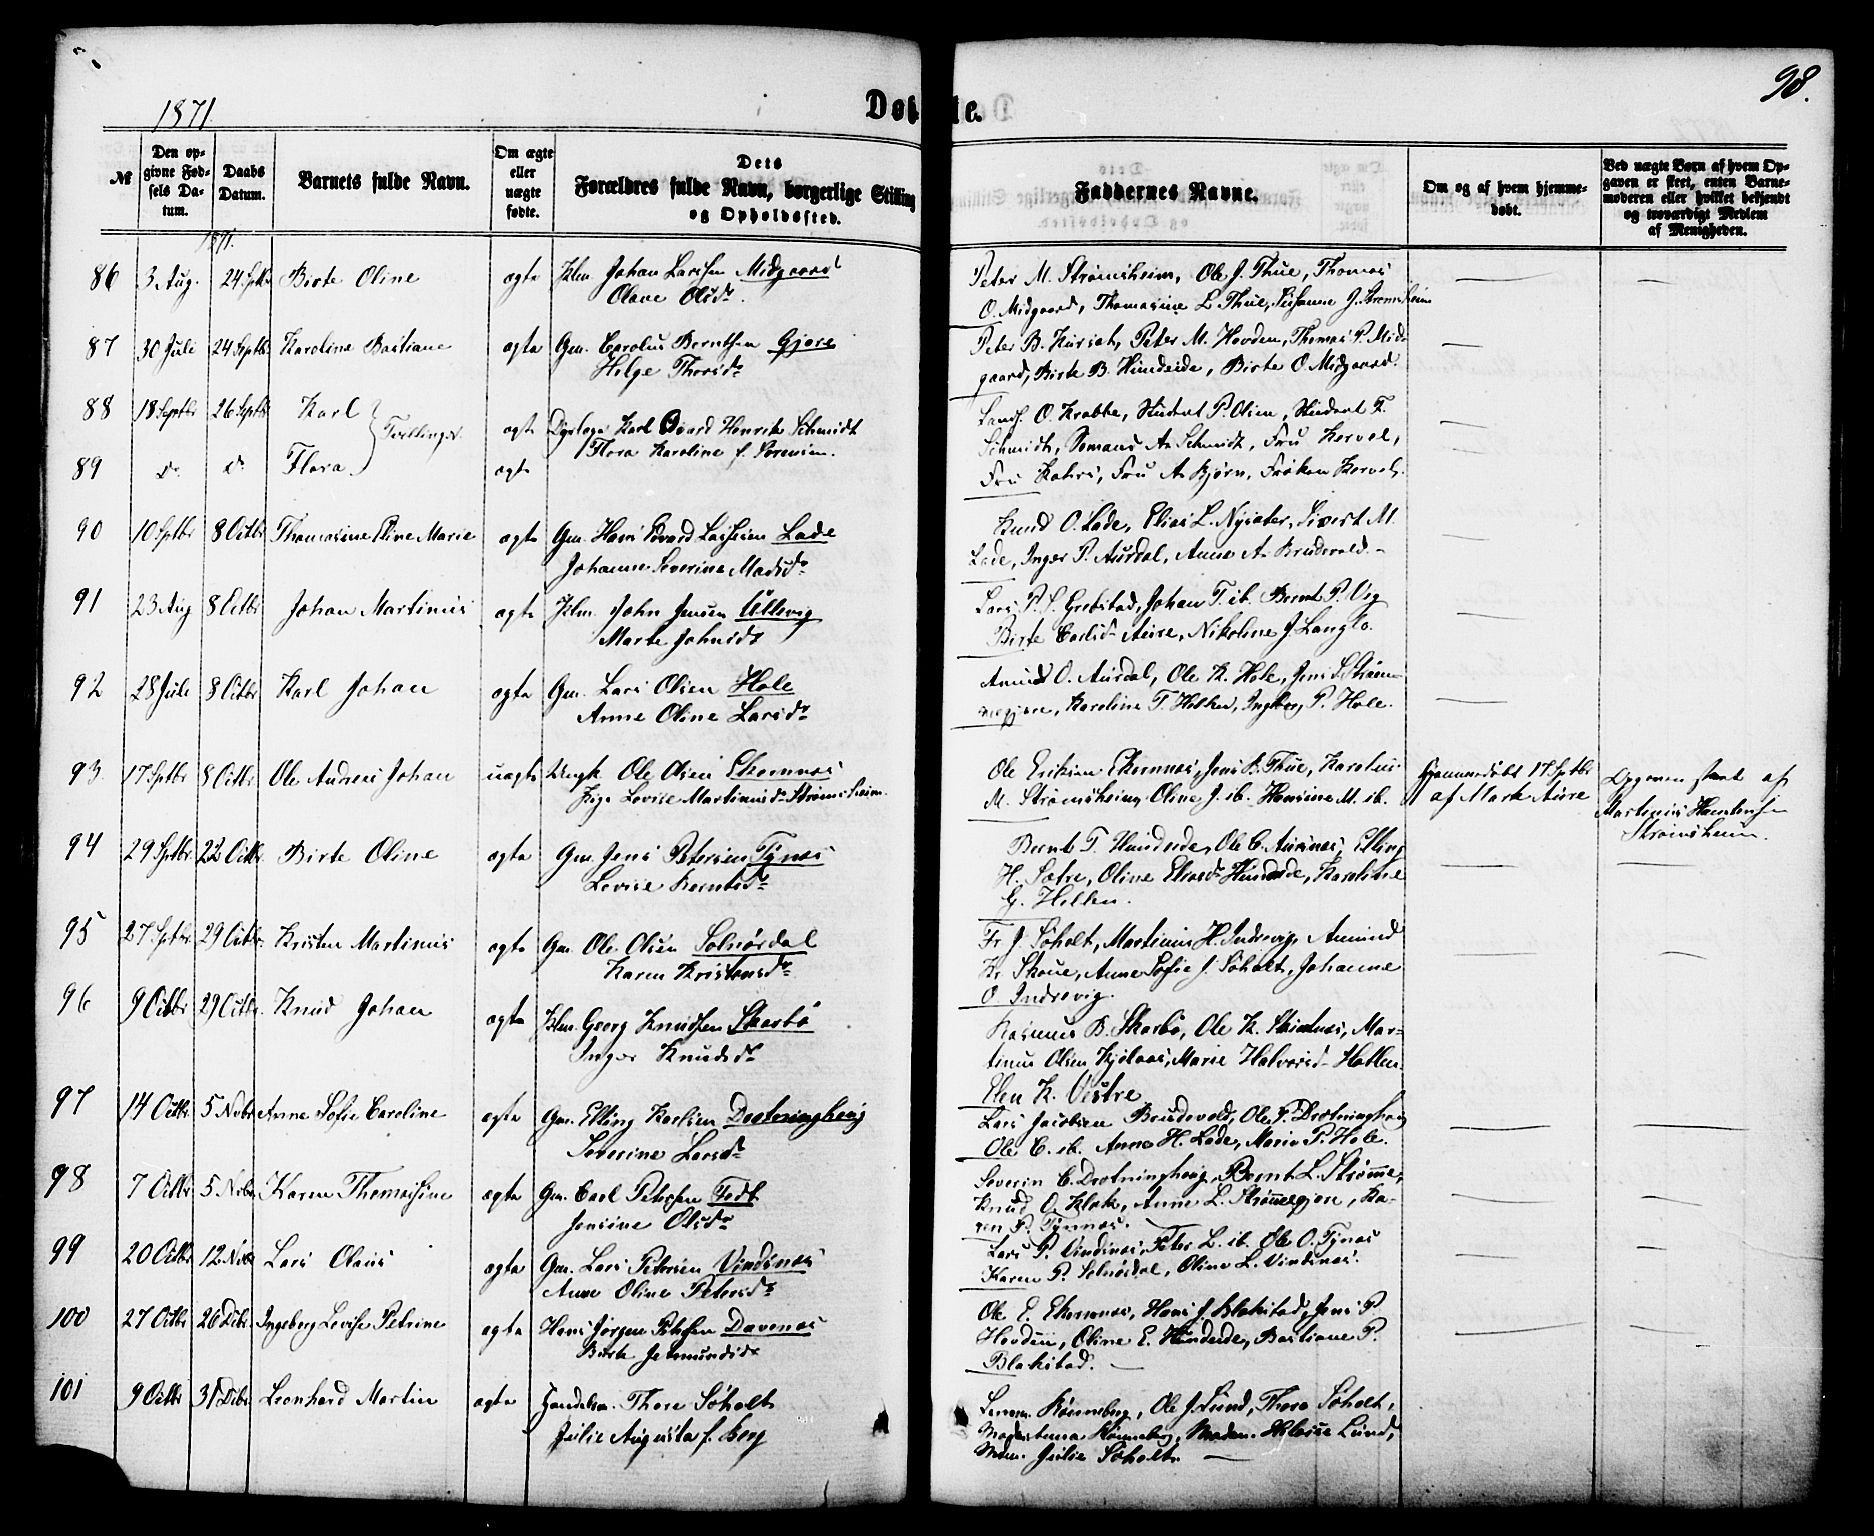 1871.
Døbte.
98.
№
Den opgivne Fødsels Datum.
Daabs Datum.
Barnets fulde Navn.
Om ægte eller uægte fødte.
Dets Forældres fulde Navn, borgerlige Stilling og Opholdssted.
Faddernes Navne.
Om og af hvem hjemmedøbt.
Ved uægte Børn af hvem Opgaven er skeet, enten Barnemoderen eller hvilket bekjendt og troværdigt Medlem af Menigheden.
1871.
86 3 Aug. 24 Septbr Birte Oline ægte Johan Larssen Midgaard
Olave Olsdr.
Peter M. Strømsheim, Ole J. Thue, Thomas
O. Midgaard, Thomasine L. Thue, Susanne J. Strømsheim
87 30 Juli 24 Septbr Karoline Bastiane ægte Gm. Carolus Berntsen Gjøre
Helge Thorsdr
Peter B. Hurset, Peter M. Hovden, Thomas P. Mid-
gaard, Birte B. Hundeide, Birte O. Midgaard.
88 18 Septbr 26 Septbr Karl } Tvillinger. ægte Dyrlæge Karl Edvard Henrik Schmidt
89 do do Flora } ægte Flora Karoline f. Sørensen.
O. Krabbe, Student P. Olsen, Student F.
Schmidt, A. Schmidt, Fru Kervel,
Fru Fru A. Bjørn, Frøken Kervel.
90 10 Septbr 8 Octbr Thomasine Eline Marie ægte Gm. Hans Edvard Larssen Lade
Johanne Severine Madsdr
Knud O. Lade, Elias L. Nysæter, Sivert M.
Lade, Inger P. Aurdal, Anne A. Brudevold.
91 23 Aug 8 Octbr Johan Martinus ægte John Jensen Ullevig
Marte Johnsdr
Lars P. S. Grebstad, Johan T. ib. Bernt P. Vig
Birte Carlsdr Aure, Nikoline J. Langlo.
92 28 Juli 8 Octbr Karl Johan ægte Gm. Lars Olsen Hole
Anne Oline Larsdr
Amund O. Aurdal, Ole K. Hole, Jens S. Strøm-
megjære, Karoline T. Hellen, Ingeborg P. Hole.
93. 17 Septbr 8 Octbr Ole Andreas Johan uægte Ungk Ole Olsen Ekornnes
Pige Lovise Martinusdr Strømsheim.
Ole Eriksen Ekornnes, Jens B. Thue, Karolus
M. Strømsheim, Oline J. ib. Hansine M. ib.
Hjemmedøbt 17 Septbr
af Mark Aure
Opgaven skeet af
Martinus
Strømsheim.
94 29 Septbr 22 Octbr Birte Oline ægte Gm. Jens Petersen Tynes
Lovise Berntsdr
Bernt T. Hundeide, Ole C. Aursnes, Elling
H. Sætre, Oline Eliasdr Hundeide, Karoline
G. Hellen.
95 27 Septbr 29 Octbr. Kristen Martinus ægte Gm. Ole Olsen Solnørdal
Karen Kristensdr
Fr. J. Søholt, Martinus H. Indrevig, Amund
Kr. Skoue, Anne Sofie J. Søholt, Johanne
O. Indrevig.
96 9 Octbr 29 Octbr. Knud Johan ægte Georg Knudsen Skarbø
Inger Knudsdr
Rasmus B. Skarbø, Ole K. Mar-
tinus Olsen Kjølaas, Marie Halvorsd. Hatlen.
Elen K. Vestre
97 14 Octbr 5 Novbr Anne Sofie Caroline ægte Gm. Elling Karlsen Drotninghaug
Severine Larsdr
Lars Jacobsen Brudevold, Ole P. Drotninghaug
Ole C. ib. Anne H. Lade, Marie P. Hole.
98 7 Octbr 5 Novbr Karen Thomasine ægte Gm. Carl Petersen Toft
Jensine Olsdr
Severin C. Drotninghaug, Bernt L. Strømme,
Knud O. Klok, Anne L. Strømmegjære, Ka-
ren P. Tynnes.
99 20 Octbr 12 Novbr Lars Olaus ægte Gm. Lars Petersen Vindsnes
Anne Oline Petersdr
Lars P. Vindsnes, Peter L. ib. Ole O. Tynes
Karen P. Solnørdal, Oline L. Vindsnes.
100 27 Octbr 26 Decbr. Ingeborg Lovise Petrine ægte Hans Jørgen Petersen Davenes
Birte Jetmundsdr
Ole E. Ekornnes, Hans J. Blakstad, Jens P.
Hovden, Oline E. Hundeide, Bastiane P.
Blakstad.
101 9 Octbr 31 Decbr Leonhard Martin ægte Handelsm. Thore Søholt
Julie Augusta f. Berg
Rønneberg, Ole J. Lund, Thore Søholt,
Madm. Anna Rønneberg, Madm. Lund,
Mdm. Julie Søholt.